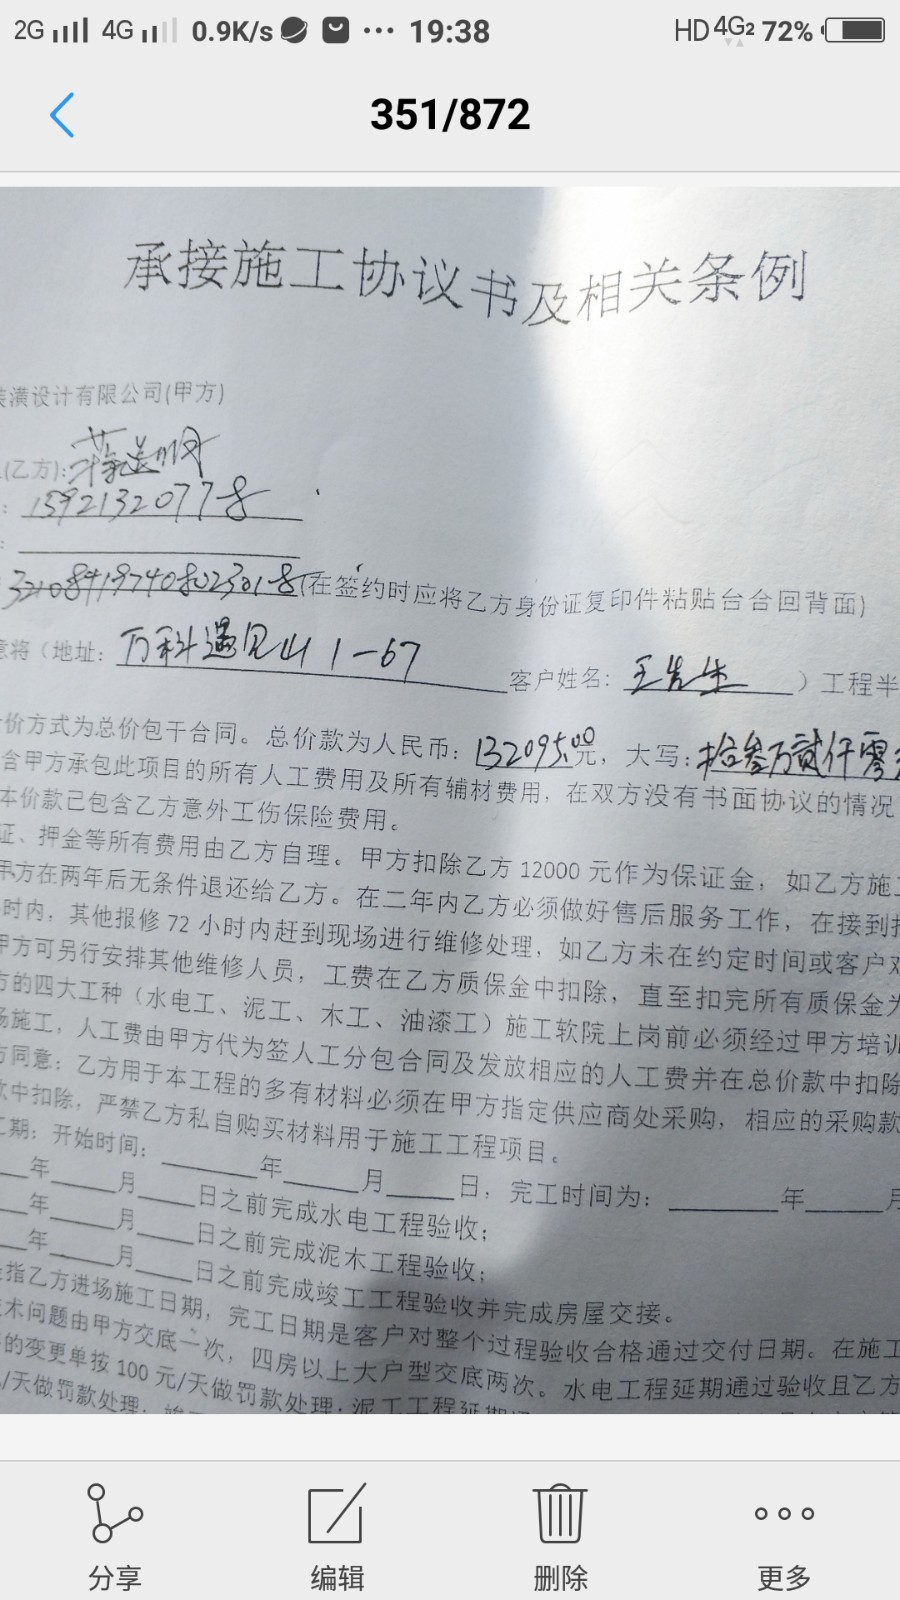 2G 4G 0.9K/s ... 19:38 HD 4G2 72%
351/872
承接施工协议书及相关条例
装潢设计有限公司(甲方)
(乙方):
: 15921320778
:
321084197408023018(在签约时应将乙方身份证复印件粘贴台合回背面)
意将(地址: 万科遇见山 1-67 客户姓名: 王先生 )工程半
价方式为总价包干合同。总价款为人民币: 132095.00元, 大写: 拾叁万贰仟零
含甲方承包此项目的所有人工费用及所有辅材费用, 在双方没有书面协议的情况
本价款已包含乙方意外工伤保险费用。
证、押金等所有费用由乙方自理。甲方扣除乙方 12000 元作为保证金, 如乙方施工
甲方在两年后无条件退还给乙方。在二年内乙方必须做好售后服务工作, 在接到
时内, 其他报修 72 小时内赶到现场进行维修处理, 如乙方未在约定时间或客户
甲方可另行安排其他维修人员, 工费在乙方质保金中扣除, 直至扣完所有质保金为
方的四大工种(水电工、泥工、木工、油漆工)施工软院上岗前必须经过甲方培训
场施工, 人工费由甲方代为签人工分包合同及发放相应的人工费并在总价款中扣除
方同意; 乙方用于本工程的多有材料必须在甲方指定供应商处采购, 相应的采购款
款中扣除, 严禁乙方私自购买材料用于施工工程项目。
工期: 开始时间: 年 月 日, 完工时间为: 年 月
年 月 日之前完成水电工程验收;
年 月 日之前完成泥木工程验收;
年 月 日之前完成竣工工程验收并完成房屋交接。
指乙方进场施工日期, 完工日期是客户对整个过程验收合格通过交付日期。在施工
术问题由甲方交底一次, 四房以上大户型交底两次。水电工程延期通过验收且乙方
的变更单按 100 元/天做罚款处理, 泥工工程延期
/天做罚款处理,
分享 编辑 删除 更多